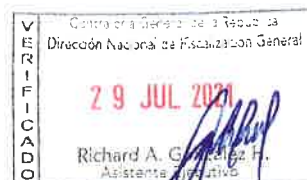 VERIFICADO
Contraloría General de la República
Dirección Nacional de Fiscalización General
29 JUL 2021
Richard A. González H.
Asistente Ejecutivo